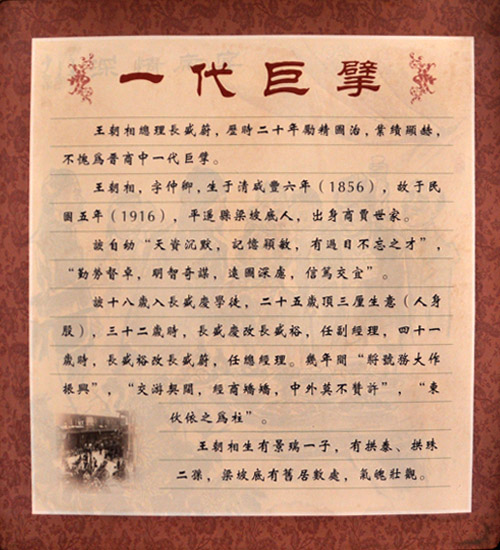 一代巨擘
王朝相總理長盛蔚，歷時二十年勵精圖治，業績顯赫，
不愧爲晋商中一代巨擘。
王朝相，字仲卿，生于清咸豐六年（1856），故于民
國五年（1916），平遥縣梁坡底人，出身商賈世家。
該自幼“天資沉默，記憶穎敏，有過目不忘之才”，
“勤勞督卓，明智奇謀，遠圖深慮，信篤交宜”。
該十八歲入長盛慶學徒，二十五歲頂三厘生意（人身
股），三十二歲時，長盛慶改長盛裕，任副經理，四十一
歲時，長盛裕改長盛蔚，任總經理。幾年間“將號務大作
振興”，“交游奥闊，經商矯矯，中外莫不贊許”，“東
伙依之爲柱”。
王朝相生有景瑞一子，有拱泰、拱珠
二孫，梁坡底有舊居數處，氣魄壯觀。